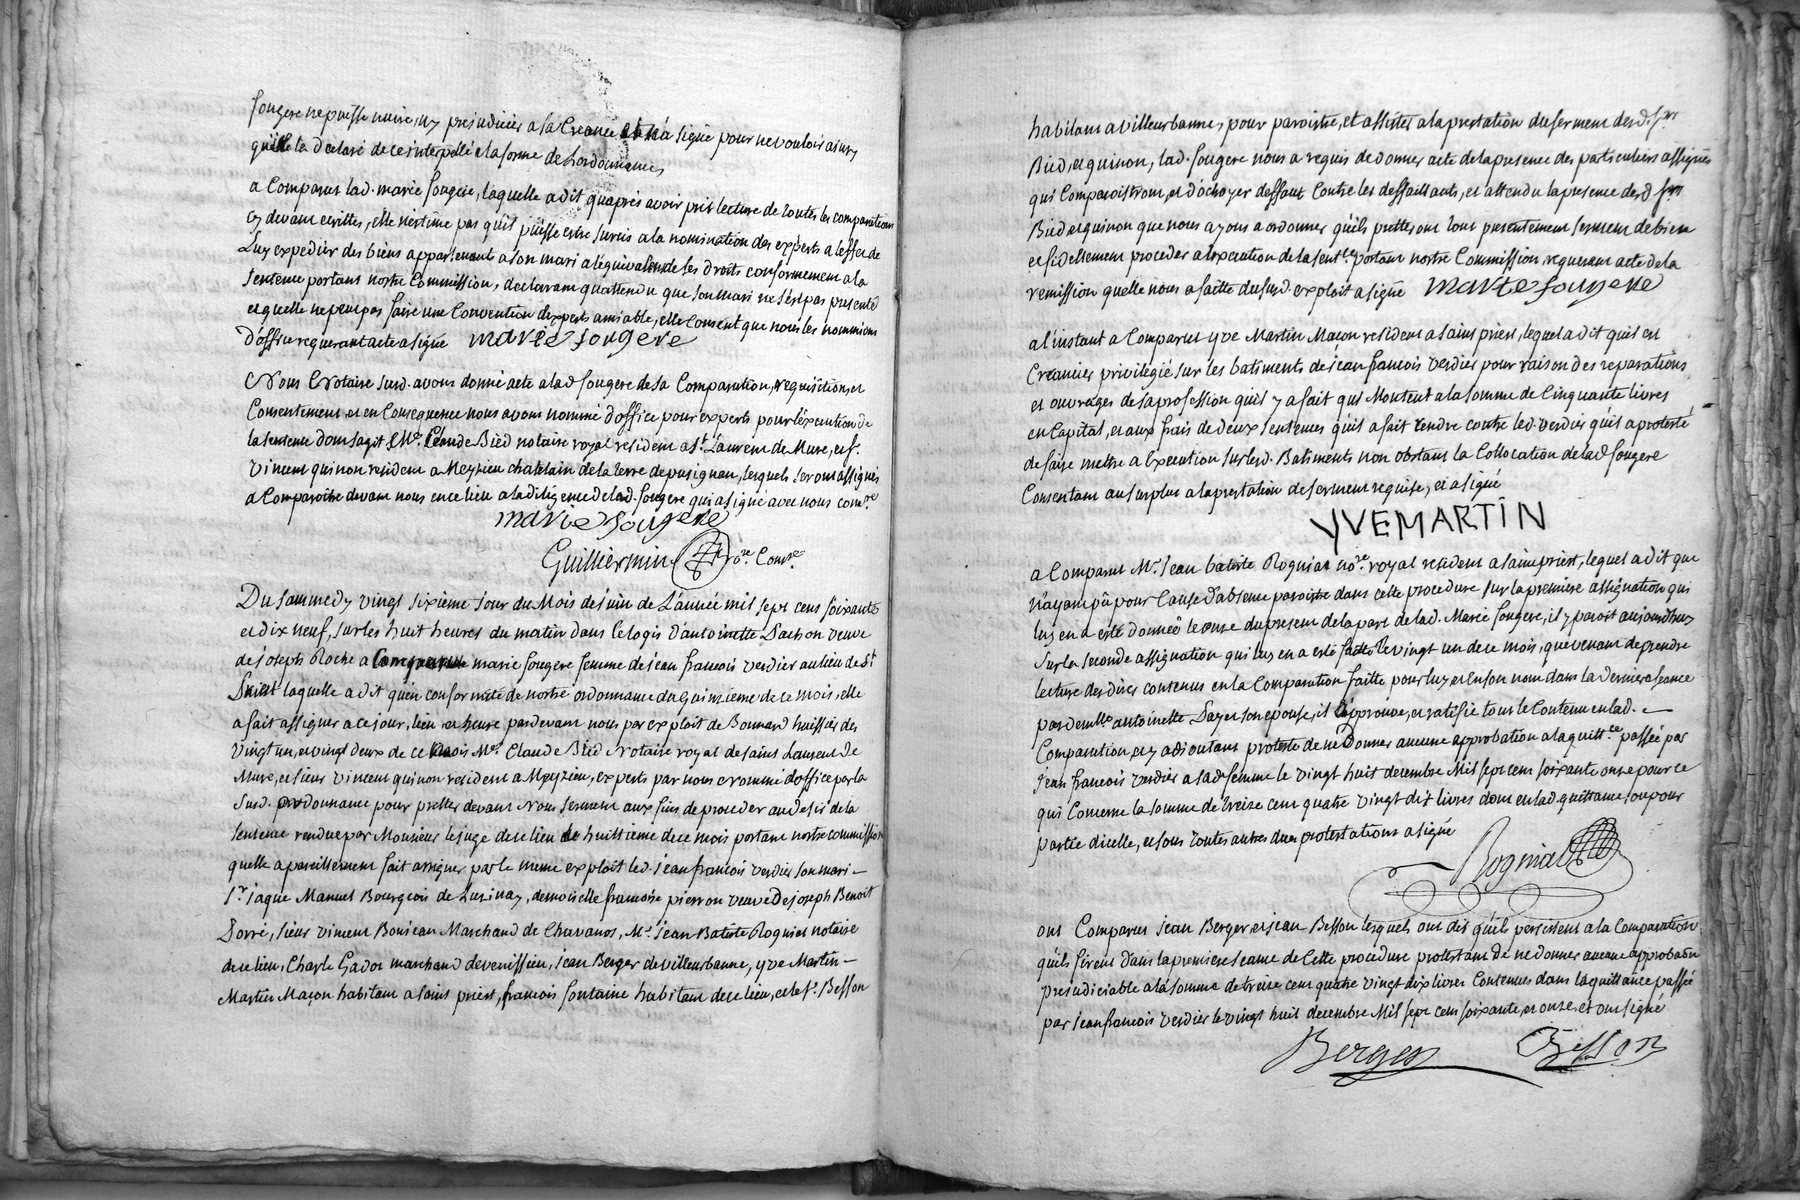 fougere ne puisse nuire, ny prejudicier a sa Creance et n'a signé pour ne vouloir ainsy
quelle la declaré de ce interpellé a la forme de l'ordonnance,
a Comparut lad. marie fougere, laquelle a dit quaprés avoir pris lecture de toutes les comparutions
cy devant ecrittes, elle n'estime pas qu'il puisse estre sursis a la nomination des experts a l'effet de
Luy expedier des biens appartenants a son mari a l'equivalent de ses droits conformement a la
sentence portant nostre Commission, declarant quattendu que son mari ne s'est pas presenté
et quelle ne peut pas faire une Convention d'experts amiable, elle Consent que nous les nommions
d'office requerant acte a signé marie fougere
Nous Notaire susd. avons donné acte a lad fougere de sa Comparution, requisitions et
Consentement et en Consequence nous avons nommé d'office pour experts pour l'execution de
la sentence dont s'agit Me. Claude Bied notaire royal resident a St. Laurent de Mure, et sr.
Vincent quinon resident a Meyzieu chatelain de la terre de pusignan, lesquels seront assignés
a Comparoitre devant nous en ce lieu a la diligence de lad. fougere qui a signé avec nous comre.
marie fougere
Guilliermin nore. Comre.
Du sammedy vingt sixieme jour du Mois de juin de L'année mil sept cent soixante
et dix neuf, sur les huit heures du matin dans le logis d'antoinette Pachon veuve
de joseph Roche a Comparut marie fougere femme de jean francois verdier au lieu de St
Priest laquelle a dit qu'en conformité de nostre ordonnance du quinzieme de ce mois, elle
a fait assigner a ce jour, lieu et heure pardevant nous par exploit de Bonnard huissier des
Vingt un, et vingt deux de ce Mois Me. Claude Bied Notaire royal de saint Laurent de
Mure, et sieur Vincent quinon resident a Meyzieu, experts par nous nommé d'office par la
susd. ordonnance pour pretter devant Nous serment aux fins de proceder au desir de la
sentence rendue par Monsieur le juge de ce lieu le huittieme de ce mois portant nostre commission
quelle a pareillement fait assigner par le meme exploit led. jean francois verdier son mari –
Sr. jaque Manuel Bourgeois de Luzinay, demoiselle francoise pierron veuve De joseph Benoit
Dorré, sieur vincent Bonjean Marchand de Chavanos, Me. jean Batiste Rogniat notaire
de ce lieu, Charle Gador marchand de venissieu, jean Berger de villeurbanne, yve Martin –
Martin Maçon habitant a saint priest, francois fontaine habitant de ce lieu, et le sr. Besson
habitant a villeurbanne, pour paroistre, et assister a la prestation du serment desd. srs
Bied, et quinon, lad. fougere nous a requis de donner acte de la presence des particuliers assignés
qui Comparoistront, et d'octroyer deffaut Contre les deffaillants, et attendu la presence desd srs
Bied et quinon que nous ayons a ordonner qu'ils pretteront tout presentement serment de bien
et fidellement proceder a l'execution de la sentce. portant nostre Commission, requerant acte de la
remission quelle nous a faitte du susd. exploit a signé marie fougere
a l'instant a Comparut yve Martin Maçon resident a saint priest, lequel a dit quil est
Creancier privilegié sur les batiments de jean francois verdier pour raison des reparations
et ouvrages de sa profession quil y a fait qui Montent a la somme de Cinquante livres
en Capital, et aux frais de deux sentences qu'il a fait rendre contre led. verdier qu'il a protesté
de faire mettre a l'execution sur lesd. Batiments non obstant la Collocation de lad fougere
Consentant au surplus a la prestation de serment requise, et a signé
YVEMARTIN
a Comparut Me. jean batiste Rogniat nore. royal resident a saint priest, lequel a dit que
n'ayant pû pour Cause d'absence paroitre dans cette procedure sur la premiere assignation qui
luy en a esté donneé le onze du present de la part de lad. Marie fougere, il y paroit aujourdhuy
sur la seconde assignation qui luy en a esté faitte le vingt un de ce mois, que venant de prendre
lecture des dires contenus en la Comparution faitte pour luy et en son nom dans la derniere seance
par demlle antoinette Payer son epouse, il L'approuve, et ratifie tout le Contenu en lad. –
Comparution, et y adjoutant proteste de ne Donner aucune approbation a la quittce. passée par
jean francois verdier a sad femme le vingt huit decembre Mil sept cent soixante onze pour ce
qui Concerne la somme de treize cent quatre vingt dix livres dont en lad. quittance, ou pour
partie d'icelle, et sous toutes autres dues protestations a signé
Rogniat
ont Comparus jean Berger et jean Besson lesquels ont dit qu'ils persistent a la Comparution
qu'ils firent dans la premiere seance de Cette procedure protestant de ne donner aucune approbation
prejudiciable a la somme de treize cent quatre vingt dix livres Contenues dans la quittance passée
par jean francois verdier le vingt huit decembre Mil sept cent soixante, et onze, et ont signé
Berger Besson